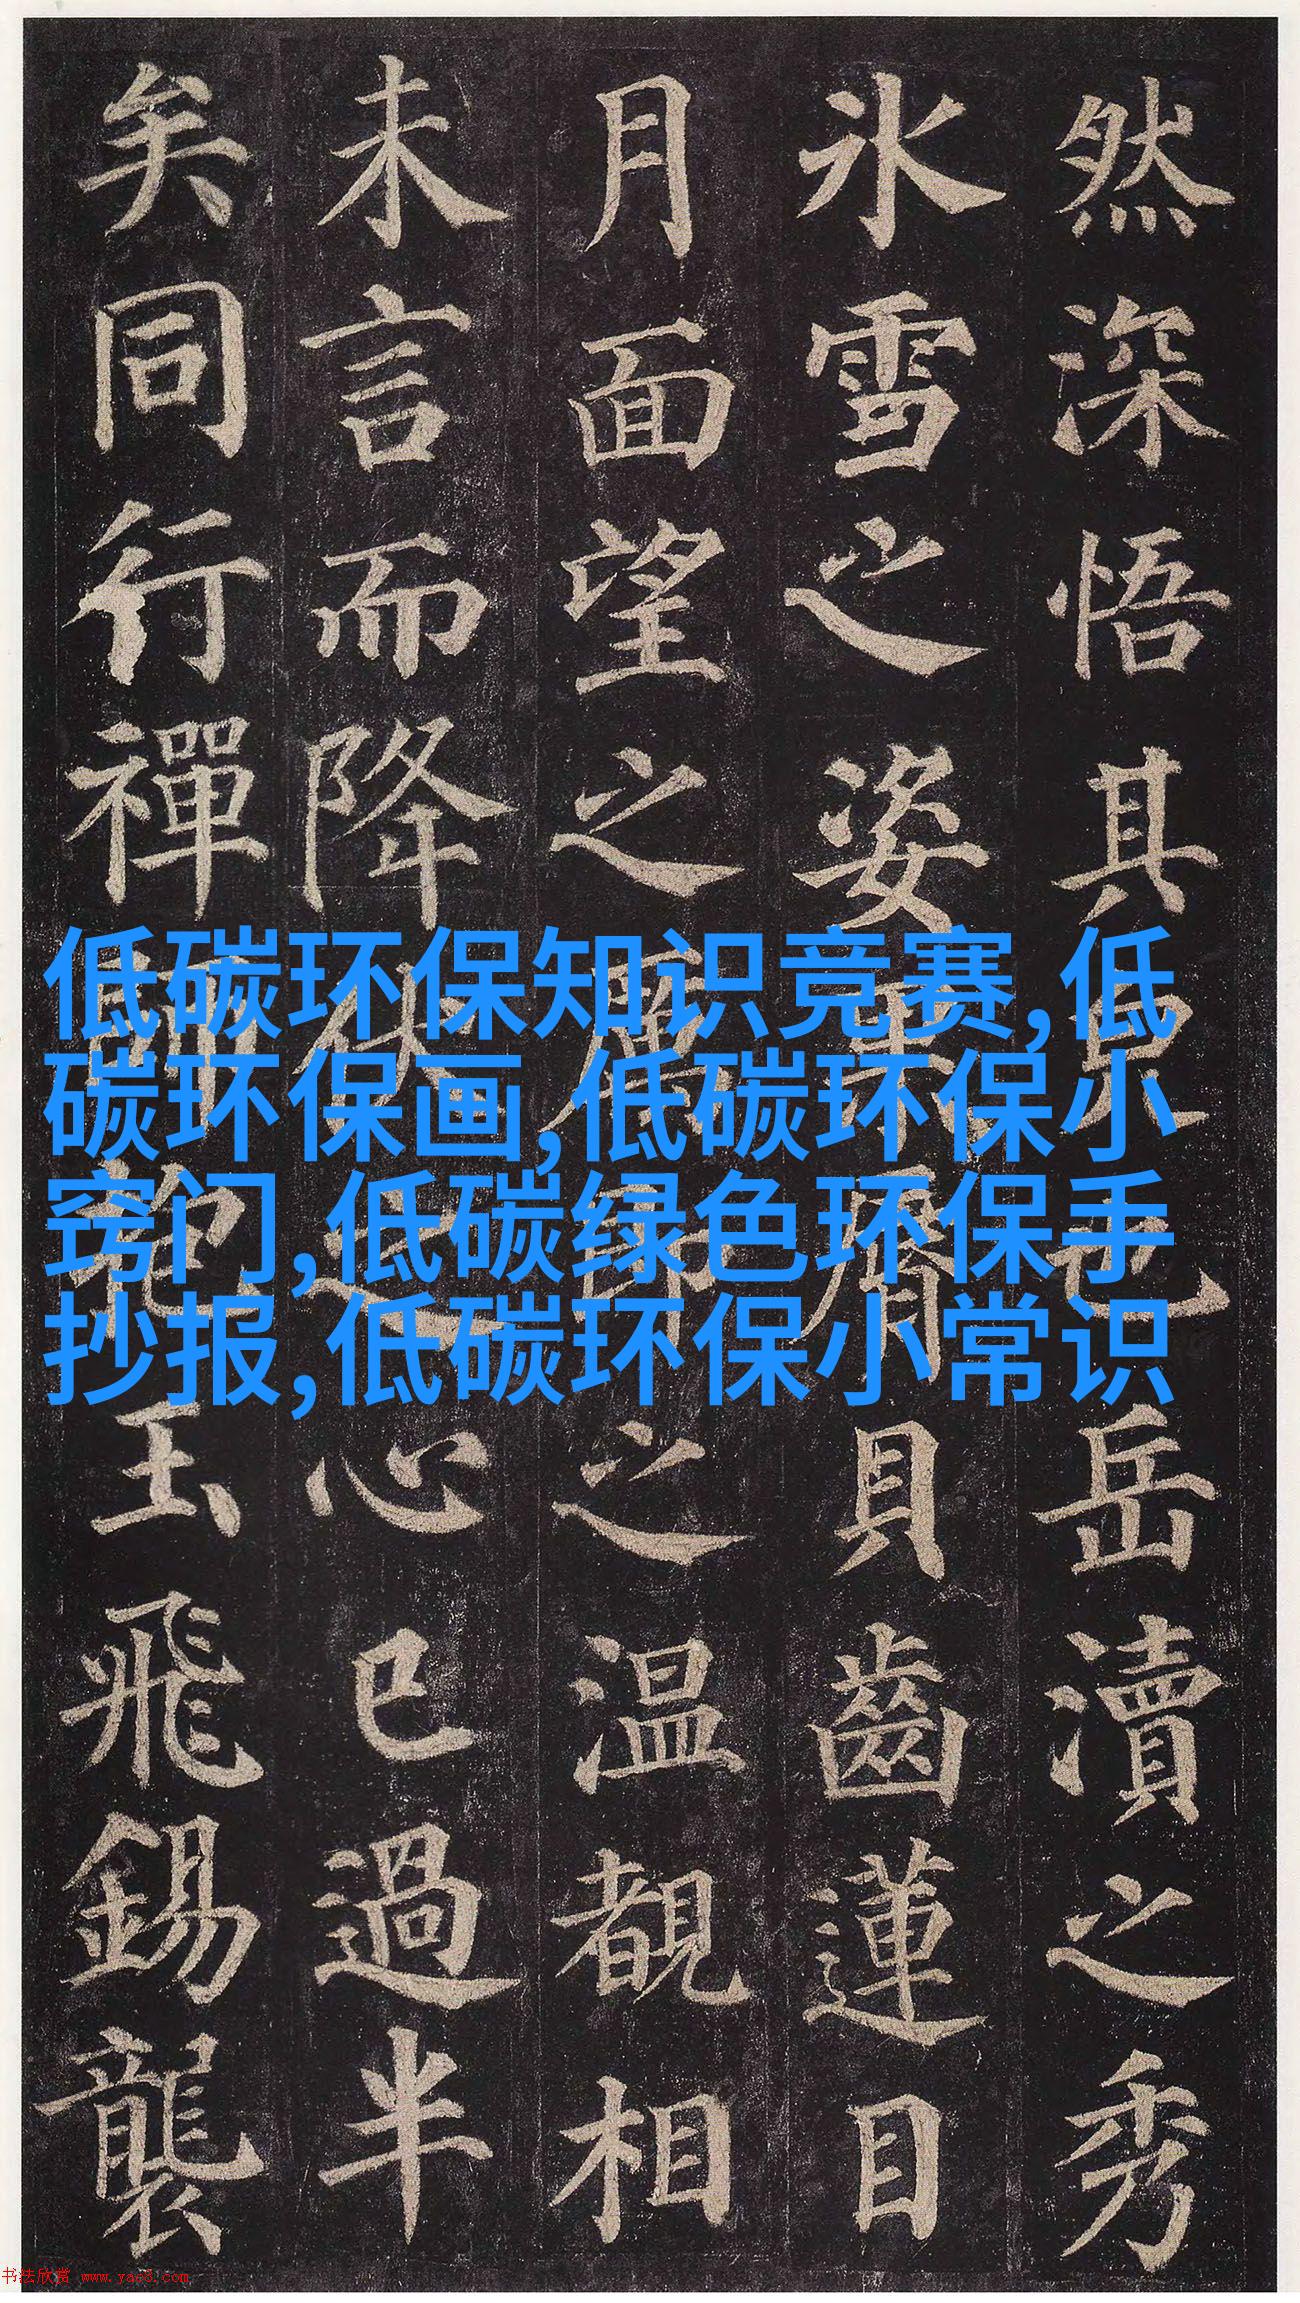 然深悟其也岳瀆之秀
氷雪之姿果脣貝齒蓮目
月面望之厲即之温覩相
未言而降伏之心已過半
矣同行禪師抱玉飛錫襲
低碳环保知识竞赛,低
碳环保画,低碳环保小
窍门,低碳绿色环保手
抄报,低碳环保小常识
书法欣赏 www.yac8.com